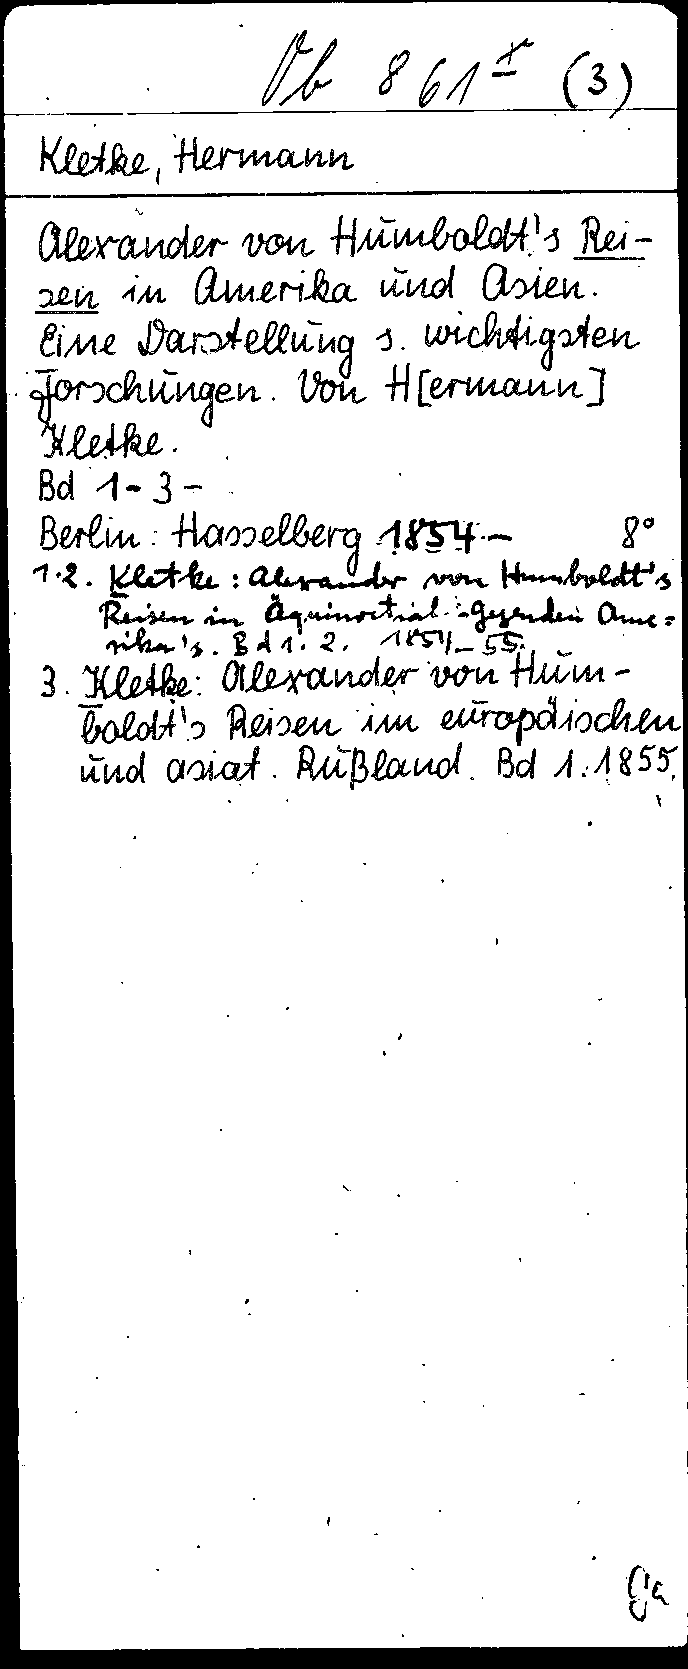 Ob 861 x (3)
Kletke, Hermann
Alexander von Humboldt's Rei-
sen in Amerika und Asien.
Eine Darstellung s. wichtigsten
Forschungen. Von H[ermann]
Kletke.
Bd 1-3-
Berlin: Hasselberg 1854.- 8°
1.2. Kletke: Alexander von Humboldt's
Reisen in Äquinoctial-Gegenden Ame=
rika's. Bd 1. 2. 1854-55.
3. Kletke: Alexander von Hum-
boldt's Reisen im europäischen
und asiat. Rußland. Bd 1. 1855.
ga